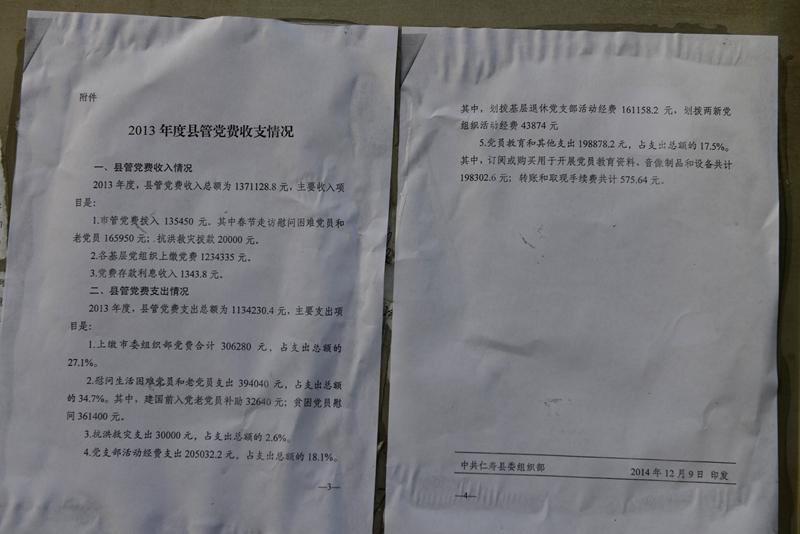 附件
2013 年度县管党费收支情况
一、县管党费收入情况
2013 年度，县管党费收入总额为 1371128.8 元，主要收入项
目是：
1.市管党费拨入 135450 元。其中春节走访慰问困难党员和
老党员 165950 元；抗洪救灾拨款 20000 元。
2.各基层党组织上缴党费 1234335 元。
3.党费存款利息收入 1343.8 元。
二、县管党费支出情况
2013 年度，县管党费支出总额为 1134230.4 元，主要支出项
目是：
1.上缴市委组织部党费合计 306280 元，占支出总额的
27.1%。
2.慰问生活困难党员和老党员支出 394040 元，占支出总额
的 34.7%。其中，建国前入党老党员补助 32640 元；贫困党员慰
问 361400 元。
3.抗洪救灾支出 30000 元，占支出总额的 2.6%。
4.党支部活动经费支出 205032.2 元，占支出总额的 18.1%。
—3—
其中，划拨基层退休党支部活动经费 161158.2 元，划拨两新党
组织活动经费 43874 元
5.党员教育和其他支出 198878.2 元，占支出总额的 17.5%。
其中，订阅或购买用于开展党员教育资料、音像制品和设备共计
198302.6 元；转账和取现手续费共计 575.64 元。
中共仁寿县委组织部 2014 年 12 月 9 日 印发
—4—